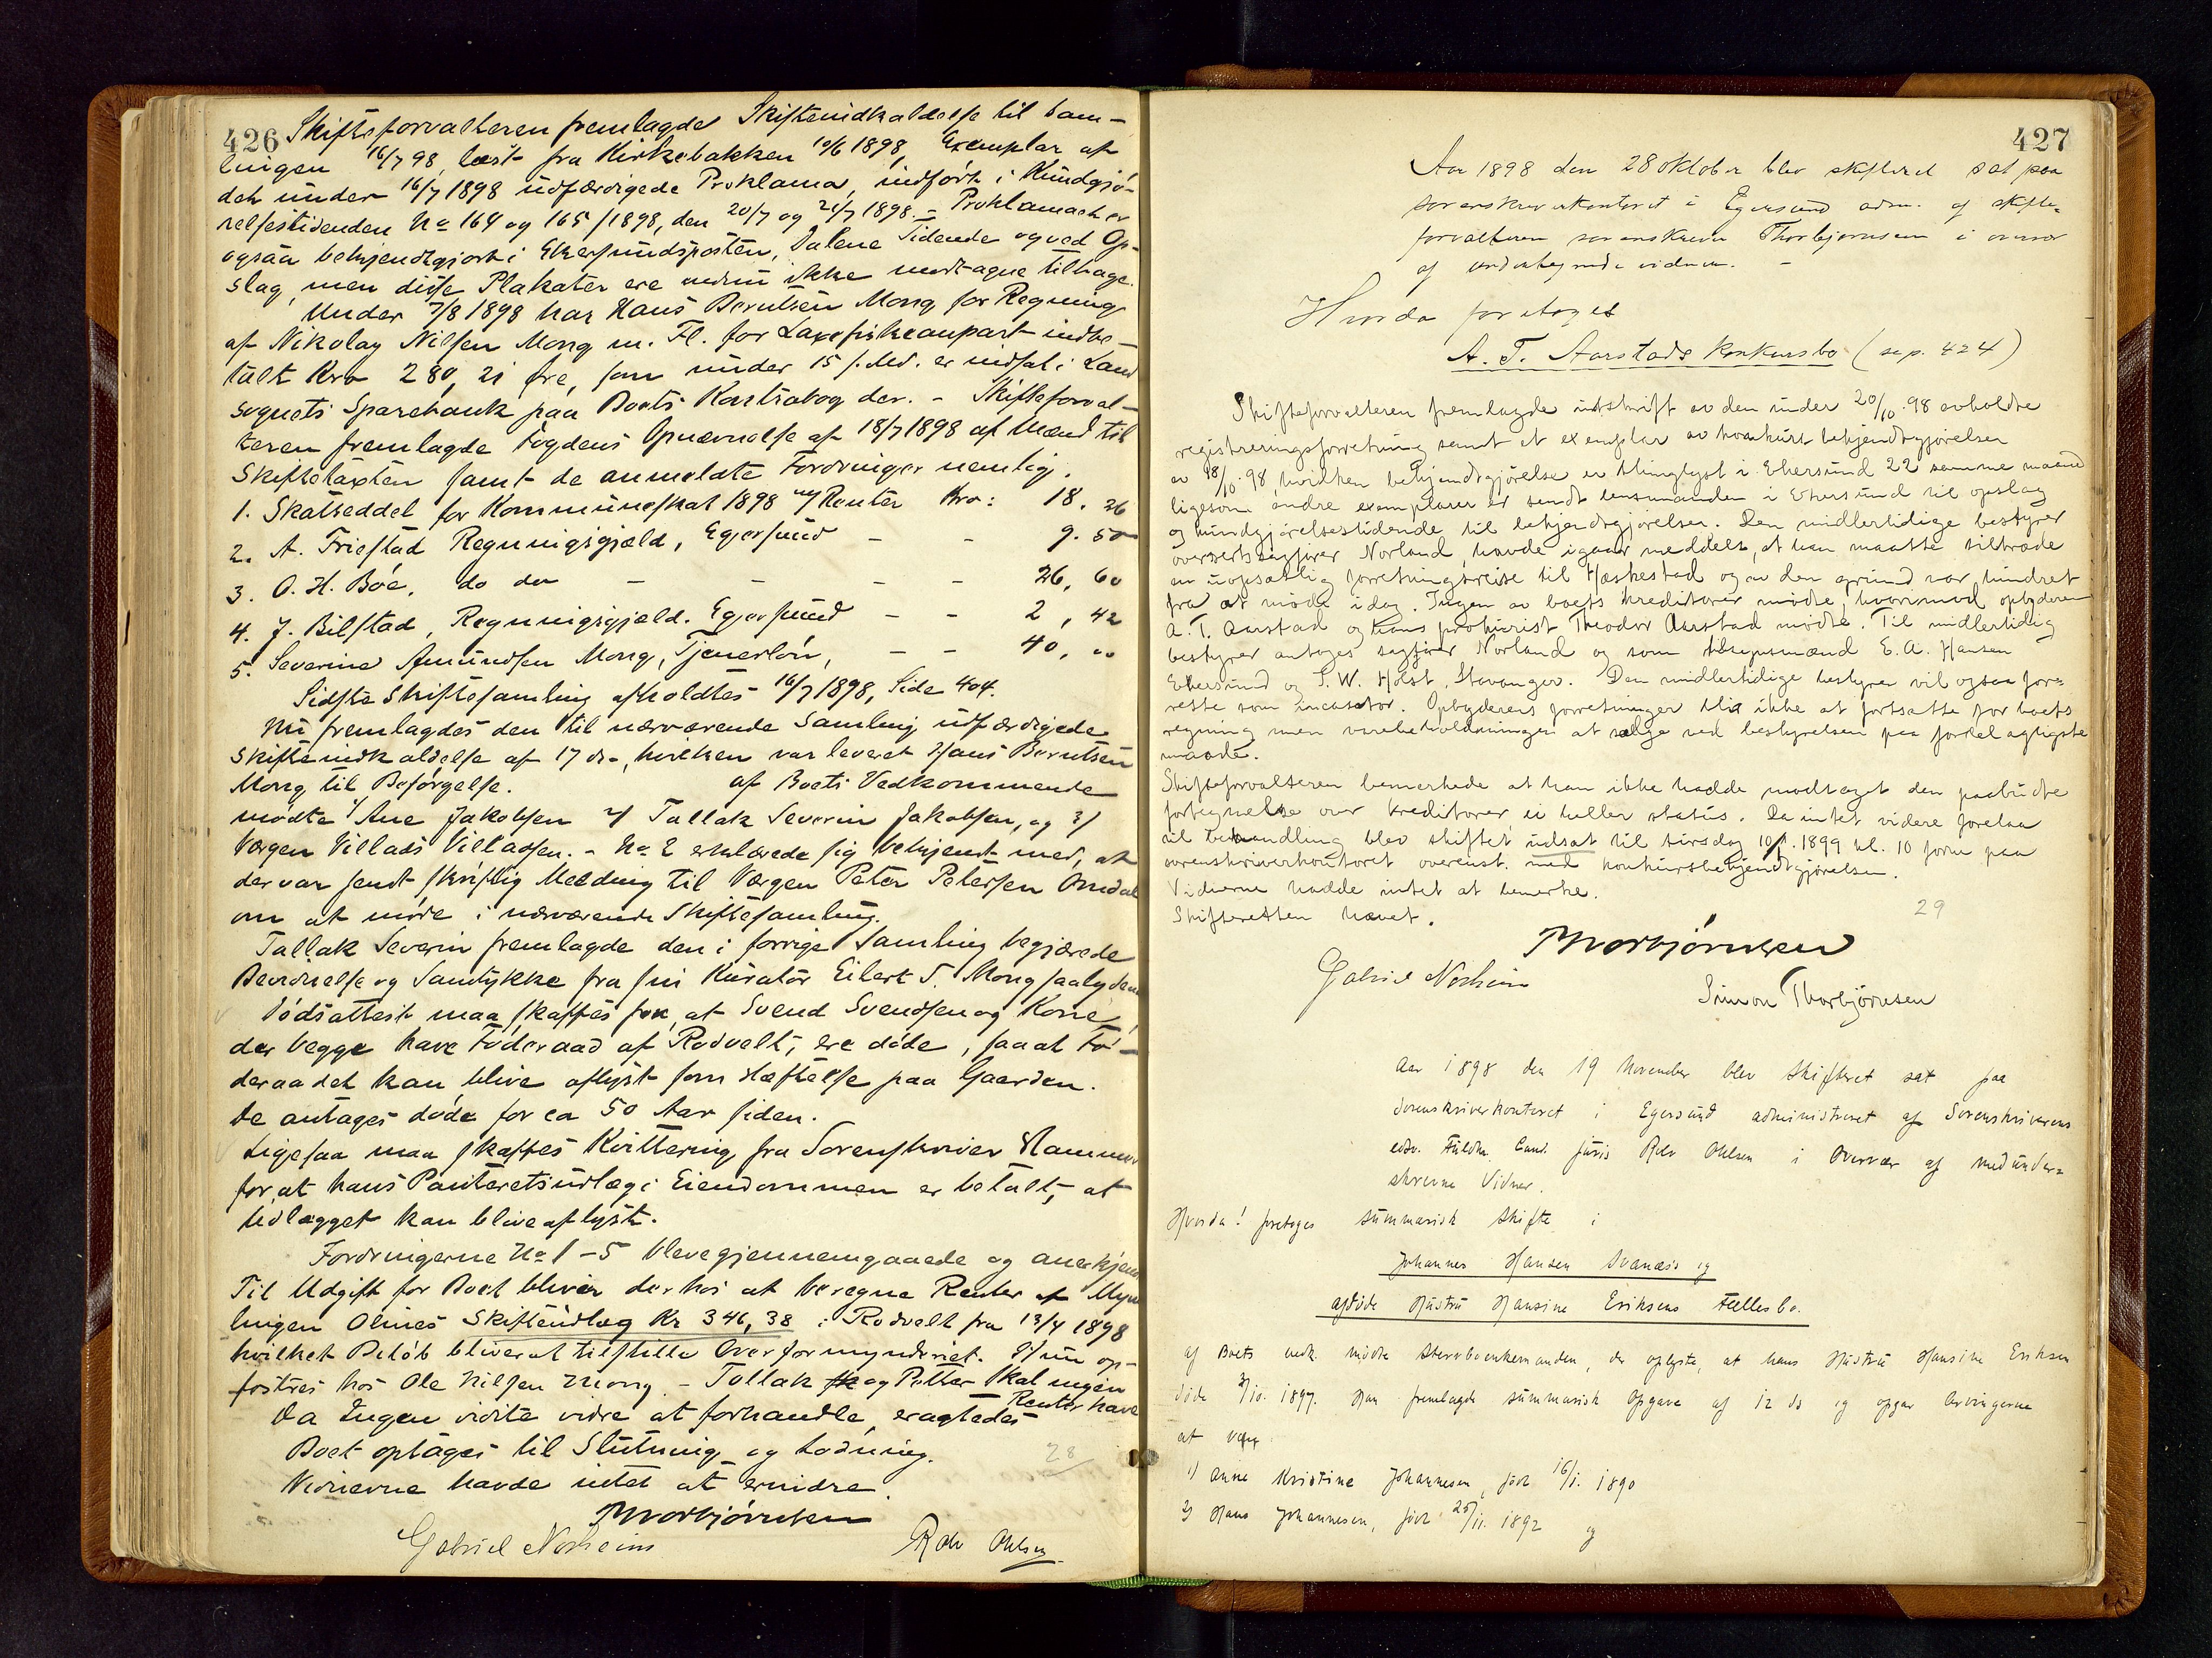 426
Skifteforvalteren fremlagde Skifteindkaldelse til Sam-
lingen 16/7 98, læst fra Kirkebakken 10/6 1898, Exemplar af
det under 16/7 1898 udfærdigede Proklama, indført i Kundgjø-
relsestidenden No 164 og 165/1898, den 20/7 og 21/7 1898. - Proklamaet er
ogsaa bekjendtgjort i Ekersundsposten, Dalene Tidende og ved Op-
slag, men disse Plakater ere endnu ikke modtagne tilbage.
Under 7/8 1898 har Hans Berntsen Mong for Regning
af Nikolay Nilsen Mong m. Fl. for Laxefiskeanpart indbe-
talt Kro 280, 21 øre, som under 15 s. Md. er indsat i Land
sognets Sparebank paa Boets Kontrabog der. - Skifteforval-
teren fremlagde Fogdens Opnævnelse af 18/7 1898 af Mænd til
Skiftetaxten samt de anmeldte Fordringer nemlig.
1. Skatseddel for Kommuneskat 1898 m/ Renter Kro: 18. 26
2. A. Friestad Regningsgjæld, Egersund - - 9. 50
3. O. H. Bøe, do do - - - - 26, 60
4. J. Bilstad, Regningsgjæld. Egersund - - 2, 42
5. Severine Amundsen Mong, Tjenerløn, - - 40, 00
Sidste Skiftesamling afholdtes 16/7 1898, Side 404.
Nu fremlagdes den til nærværende Samling udfærdigede
Skifteindkaldelse af 17 ds., hvilken var leveret Hans Berntsen
Mong til Besørgelse. af Boets Vedkommende
mødte 1/ Ane Jakobsen 2/ Tallak Severin Jakobsen, og 3/
Værgen Villads Villadsen. - No 2 erklærede sig bekjendt med, at
der var sendt skriftlig Melding til Værgen Peter Petersen Omdal
om at møde i nærværende Skiftesamling.
Tallak Severin fremlagde den i forrige Samling begjærede
Bevidnelse og Samtykke fra sin Kurator Eilert S. Mong saalydende
Dødsattest maa skaffes for, at Svend Svendsen og Kone,
der begge have Føderaad af Rodvelt, ere døde, saa at Fø-
deraadet kan blive aflyst som Hæftelse paa Gaarden.
De antages døde for ca 50 Aar siden.
Ligesaa maa skaffes Kvittering fra Sorenskriver Hammer
for, at hans Panteretsudlæg i Eiendommen er betalt, at
Udlægget kan blive aflyst.
Fordringerne No 1 - 5 bleve gjennemgaaede og anerkjendt
Til Udgift for Boet bliver derhos at beregne Renter af Myn
lingen Olines Skifteudlæg Kr 346,38 i Rodvelt fra 13/4 1898
hvilket Beløb bliver at tilstille Overformynderiet. Hun op-
fostres hos Ole Nilsen Mong. - Tallak og Petter skal ingen
Renter have
Da Ingen vidste videre at forhandle, eragtedes
Boet optages til Slutning og Lodning. 28
Vidnerne havde intet at erindre.
Thorbjørnsen
Gabriel Norheim Rolv Ohlsen
427
Aar 1898 den 28 oktober blev skifteret sat paa
sorenskriverkontoret i Egersund adm. af skifte-
forvalteren sorenskriver Thorbjørnsen i overvær
af undertegnede vidner. -
Hvorda foretoges
A. T. Aarstads konkursbo (se p. 424)
Skifteforvalteren fremlagde utskrift av den under 20/10 98 avholdte
registreringsforretning samt et exemplar av konkurs bekjendtgjørelsen
av 18/10 98 hvilken bekjendtgjørelse er thinglyst i Ekersund 22 samme maaned
ligesom andre exemplarer er sendt lensmanden i Ekersund til opslag
og kundgjørelsestidende til bekjendtgjørelse. Den midlertidige bestyrer
overretssagfører Norland, havde igaar meddelt, at han maatte tiltræde
en uopsættlig forretningsreise til Hæskestad og av den grund var hindret
fra at møde idag. Ingen av boets kreditorer mødte, hvorimod opbyderen
A. T. Aarstad og hans prokurist Theodor Aarstad mødte. Til midlertidig
bestyrer antoges sagfører Norland og som tilsynsmænd E. A. Hansen
Ekersund og S. W. Holst, Stavanger. Den midlertidige bestyrer vil ogsaa fore-
rette som incasator. Opbyderens forretninger blir ikke at fortsætte for boets
regning men varebeholdningen at sælge ved bestyrelsen paa fordelagtigste
maade.
Skifteforvalteren bemerkede at han ikke hadde modtaget den paabudte
fortegnelse over kreditorer ei heller status. Da intet videre forelaa
til behandling blev skiftet udsat til tirsdag 10/1. 1899 kl. 10 form paa
sorenskriverkontoret overenst. med konkursbekjendtgjørelsen.
Vidnerne hadde intet at bemerke.
Skifteretten hævet. 29
Thorbjørnsen
Gabriel Norheim
Simon Thorbjørnsen
Aar 1898 den 19 November blev Skifteret sat paa
Sorenskriverkontoret i Egersund administreret af Sorenskriverens
edsv. Fuldm. Cand. juris Rolv Ohlsen i Overvær af medunder-
skrevne Vidner.
Hvorda! foretoges summarisk Skifte i
Johannes Hansen Svanæs og
afdøde Hustru Hansine Eriksens Fællesbo.
af Boets vedk. mødte Stervboenkemanden, der oplyste, at hans Hustru Hansine Eriksen
døde /10. 1897. Han fremlagde summarisk Opgave af 12 ds og opgav Arvingerne
at være
1) Anne Kristine Johannesen, født 16/1. 1890
2) Hans Johannesen, født 25/11. 1892 og